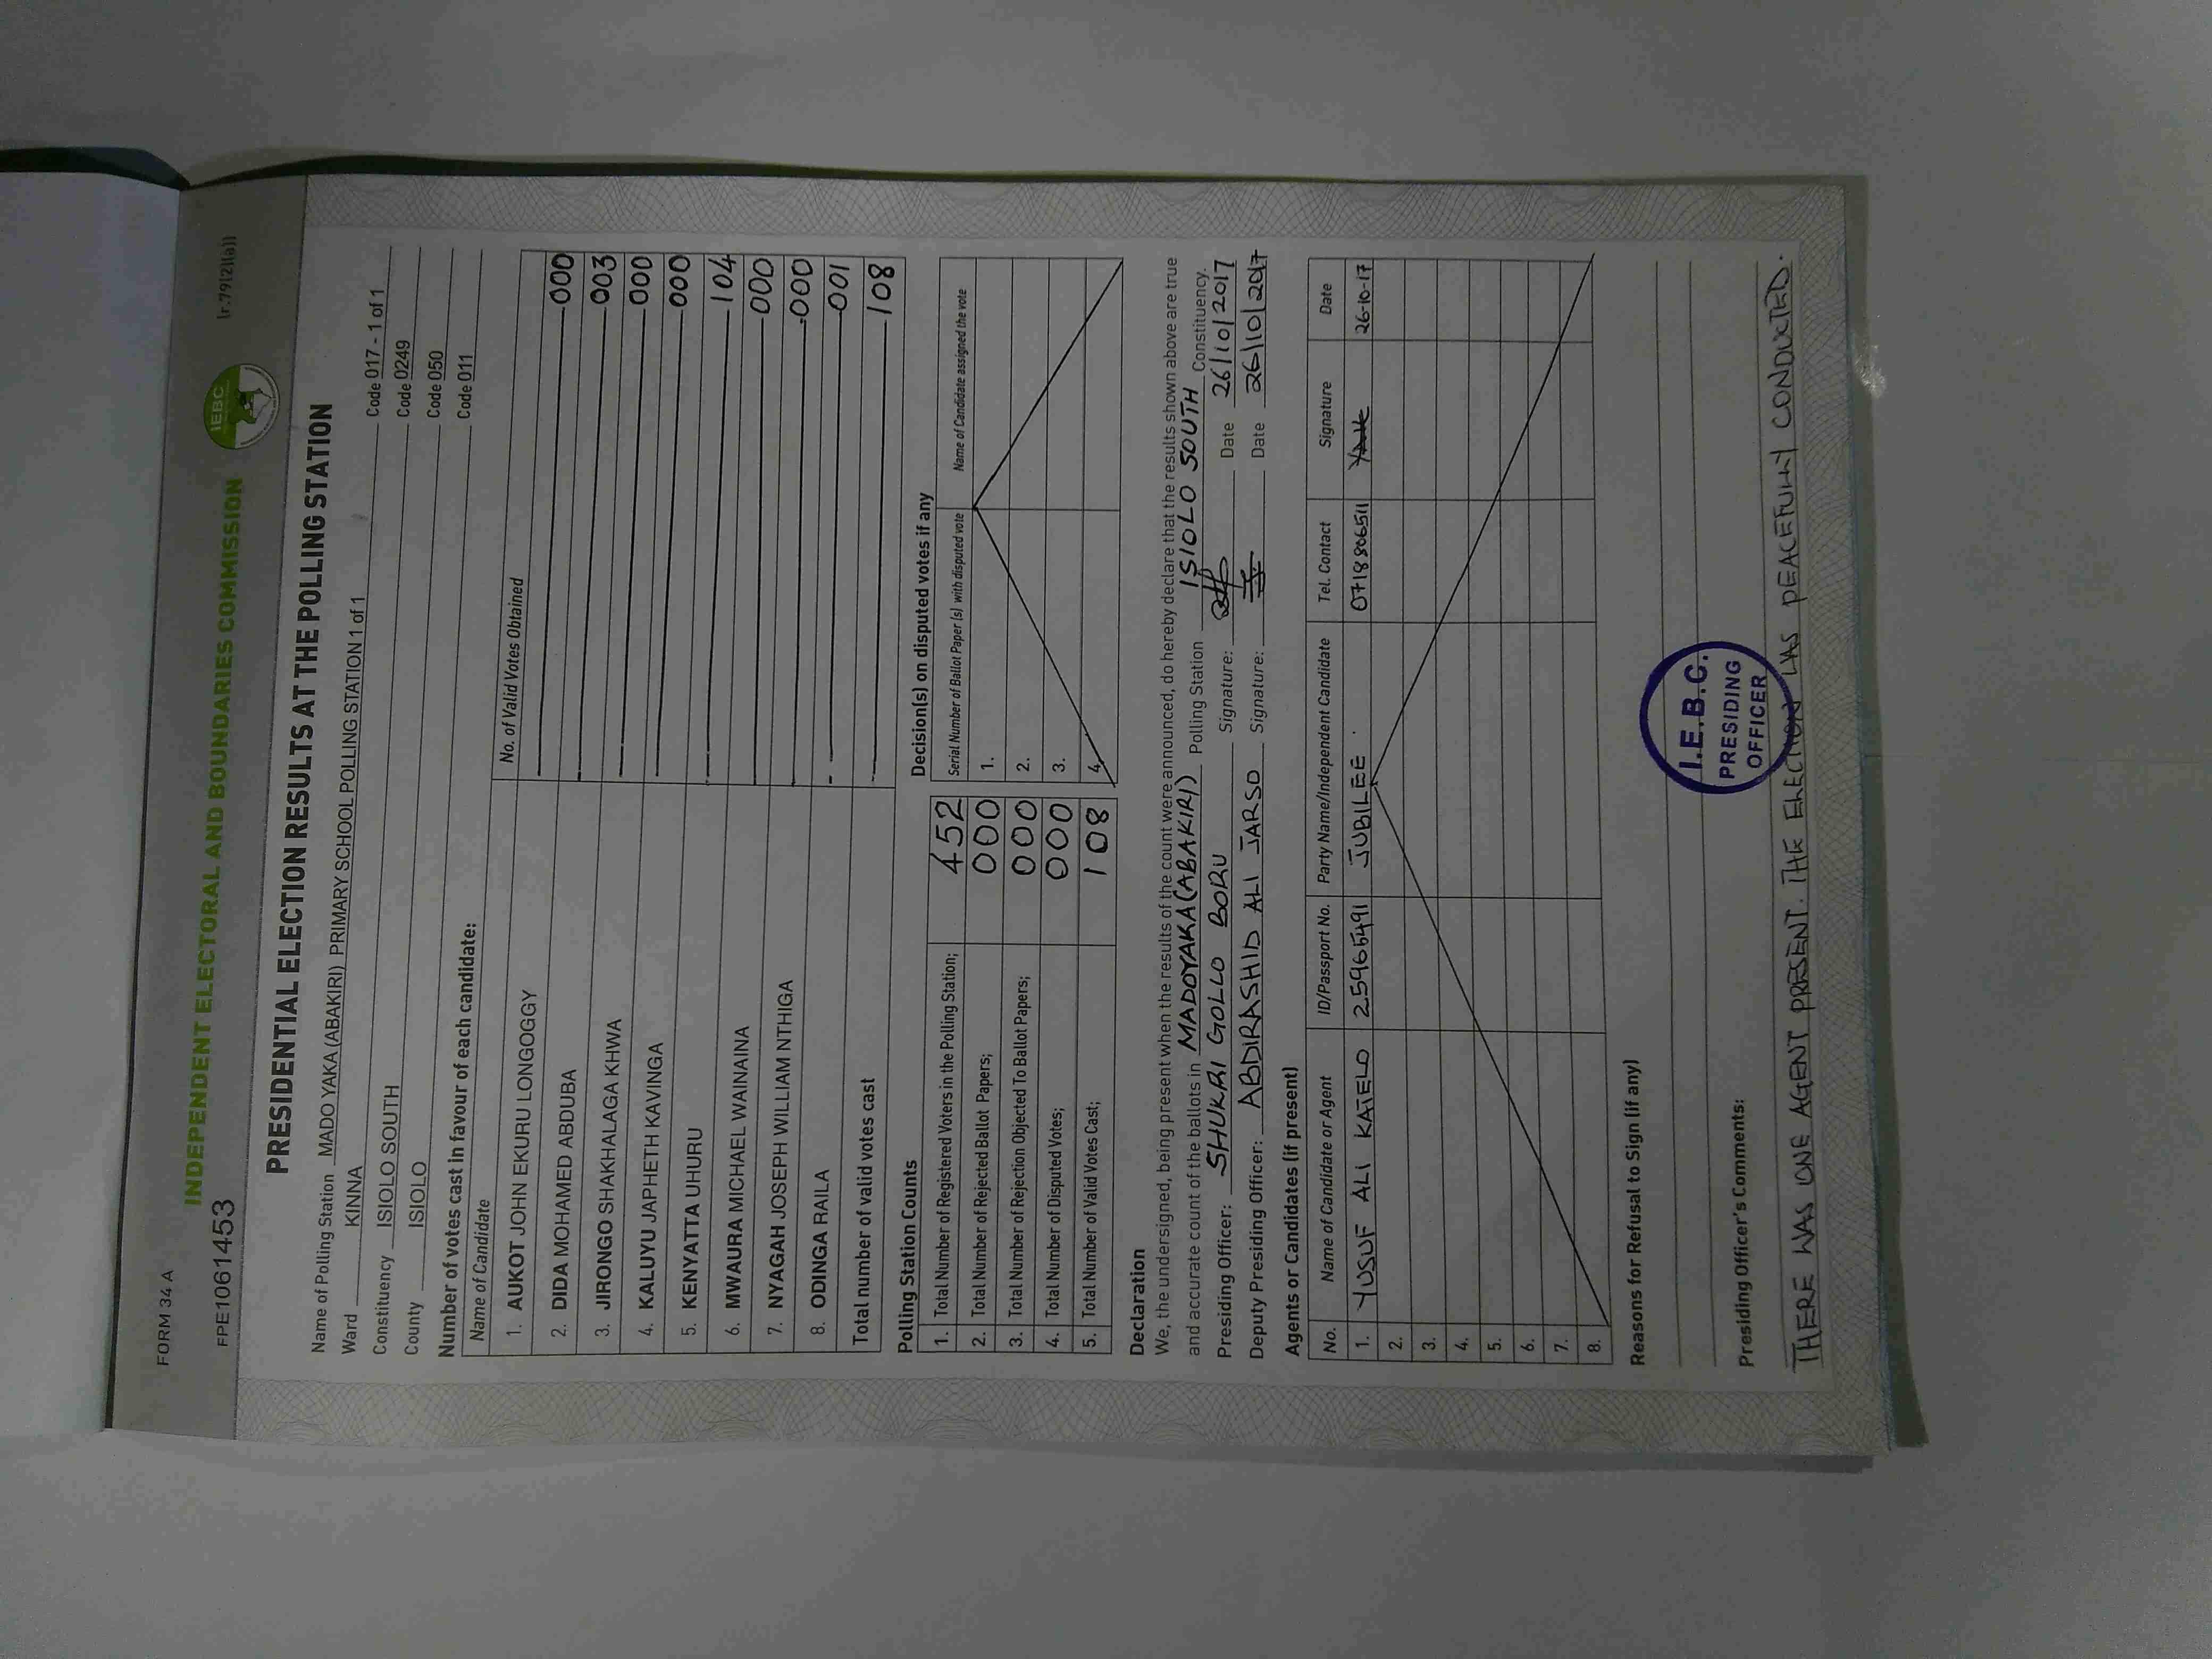 FORM 34 A
INDEPENDENT ELECTORAL AND BOUNDARIES COMMISSION
IEBC
(r.79(2)(a))
FPE1061453
PRESIDENTIAL ELECTION RESULTS AT THE POLLING STATION
Name of Polling Station MADO YAKA (ABAKIRI) PRIMARY SCHOOL POLLING STATION 1 of 1 Code 017 - 1 of 1
Ward KINNA Code 0249
Constituency ISIOLO SOUTH Code 050
County ISIOLO Code 011
Number of votes cast in favour of each candidate:
Name of Candidate No. of Valid Votes Obtained
1. AUKOT JOHN EKURU LONGOGGY 000
2. DIDA MOHAMED ABDUBA 003
3. JIRONGO SHAKHALAGA KHWA 000
4. KALUYU JAPHETH KAVINGA 000
5. KENYATTA UHURU 104
6. MWAURA MICHAEL WAINAINA 000
7. NYAGAH JOSEPH WILLIAM NTHIGA 000
8. ODINGA RAILA 001
Total number of valid votes cast 108
Polling Station Counts
1. Total Number of Registered Voters in the Polling Station; 452
2. Total Number of Rejected Ballot Papers; 000
3. Total Number of Rejection Objected To Ballot Papers; 000
4. Total Number of Disputed Votes; 000
5. Total Number of Valid Votes Cast; 108
Decision(s) on disputed votes if any
Serial Number of Ballot Paper (s) with disputed vote Name of Candidate assigned the vote
1.
2.
3.
4.
Declaration
We, the undersigned, being present when the results of the count were announced, do hereby declare that the results shown above are true
and accurate count of the ballots in MADOYAKA (ABAKIRI) Polling Station ISIOLO SOUTH Constituency.
Presiding Officer: SHUKRI GOLLO BORU Signature: Date 26/10/2017
Deputy Presiding Officer: ABDIRASHID ALI JARSO Signature: Date 26/10/2017
Agents or Candidates (if present)
No. Name of Candidate or Agent ID/Passport No. Party Name/Independent Candidate Tel. Contact Signature Date
1. YUSUF ALI KATELO 25965491 JUBILEE 0718806511 26-10-17
2.
3.
4.
5.
6.
7.
8.
Reasons for Refusal to Sign (if any)
Presiding Officer's Comments:
THERE WAS ONE AGENT PRESENT. THE ELECTION WAS PEACEFULLY CONDUCTED.
I.E.B.C.
PRESIDING
OFFICER